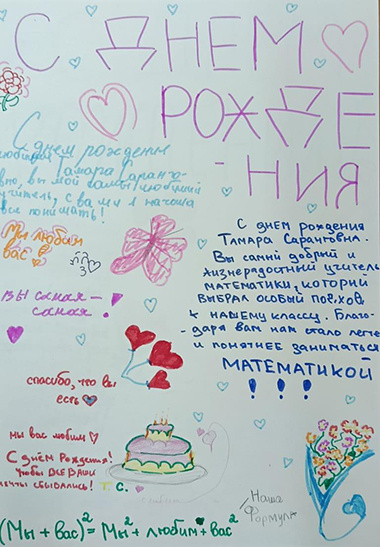 С ДНЕМ
РОЖДЕ
-НИЯ
С днем рождения
любимая Тамара Саранго-
вна, вы мой самый любимый
учитель, с вами я начала
все понимать!
Мы любим
вас
ВЫ самая-
самая!
спасибо, что вы
есть
мы вас любим
С днём Рождения!
Чтобы ВСЕ ВАШИ
мечты сбывались! Т. С.
С днем рождения
Тамара Саранговна.
Вы самий добрий и
жизнерадостный учитель
математики, который
выбрал особый подход
к нашему классу. Благо-
даря вам нам стало легче
и понятнее заниматься
МАТЕМАТИКОЙ
!!!
Наша
Формула
(Мы+вас)²=Мы²+любим+вас²